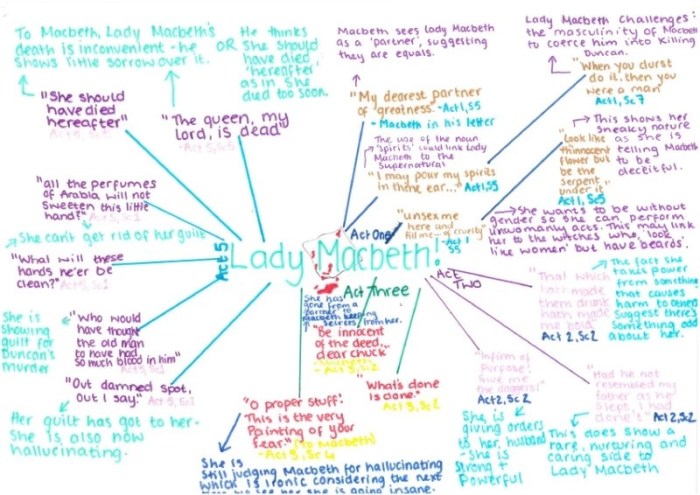 To Macbeth, Lady Macbeth's
death is inconvenient - he
shows little sorrow over it.
OR
He thinks
she should
have died
'hereafter'
as in she
died too soon.
"She should
have died
hereafter"
"The queen, my
Lord, is dead"
- Act 5, Sc5
"all the perfumes
of Arabia will not
sweeten this little
hand" Act 5, Sc1
She can't get rid of her guilt
"What will these
hands ne'er be
clean?" Act 5, Sc1
She is
showing
guilt for
Duncan's
murder
"Who would
have thought
the old man
to have had
so much blood in him"
"Out damned spot,
out I say." Act 5, Sc1
Her guilt has got to her.
She is also now
hallucinating.
Act 5
Lady Macbeth!
Act One
Act Three
Act
Two
Macbeth sees Lady Macbeth
as a 'partner', suggesting
they are equals.
"My dearest partner
of greatness" - Act 1, S5
- Macbeth in his letter
The use of the noun
'spirits' could link Lady
Macbeth to the
Supernatural
"I may pour my spirits
in thine ear..." Act 1, S5
"unsex me
here and
fill me... of cruelty"
Act 1
S5
Lady Macbeth challenges
the masculinity of Macbeth
to coerce him into killing
Duncan.
"When you durst
do it, then you
were a man"
Act 1, Sc7
This shows her
sneaky nature
as she is
telling Macbeth
to be
deceitful.
"Look like
th'innocent
flower but
be the
serpent
under it"
Act 1, Sc5
She wants to be without
gender so she can perform
unwomanly acts. This may link
her to the witches who 'look
like women' but have beards.
"That which
hath made
them drunk
hath made
me bold"
Act 2, Sc2
The fact she
takes power
from something
that causes
harm to others
suggest there's
something odd
about her.
"Infirm of
Purpose!
Give me
the daggers"
Act 2, Sc2
She is
giving orders
to her husband
- She is
strong +
Powerful
"Had he not
resembled my
father as he
slept, I had
done't"
Act 2, Sc2
This does show a
rare, nurturing and
caring side to
Lady Macbeth
She has
gone from a
'partner' to
Macbeth keeping
secrets from her.
"Be innocent
of the deed...
dear chuck"
"What's done
is done."
Act 3, Sc2
"O proper stuff!
This is the very
Painting of your
fear." (to Macbeth)
- Act 3, Sc4
She is
still judging Macbeth for hallucinating
which is ironic considering the next
time we see her she is going insane.